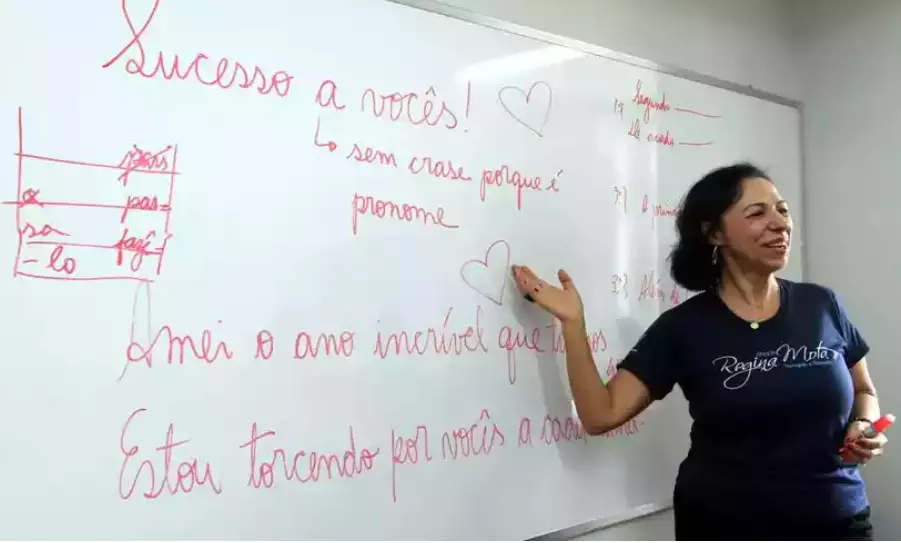 Sucesso a vocês!
sem crase porque é
pronome
pais
pas-
sa
fazê-
-lo
Amei o ano incrível que
Estou torcendo por vocês a
1:
Segundo
3:
Regina Mota